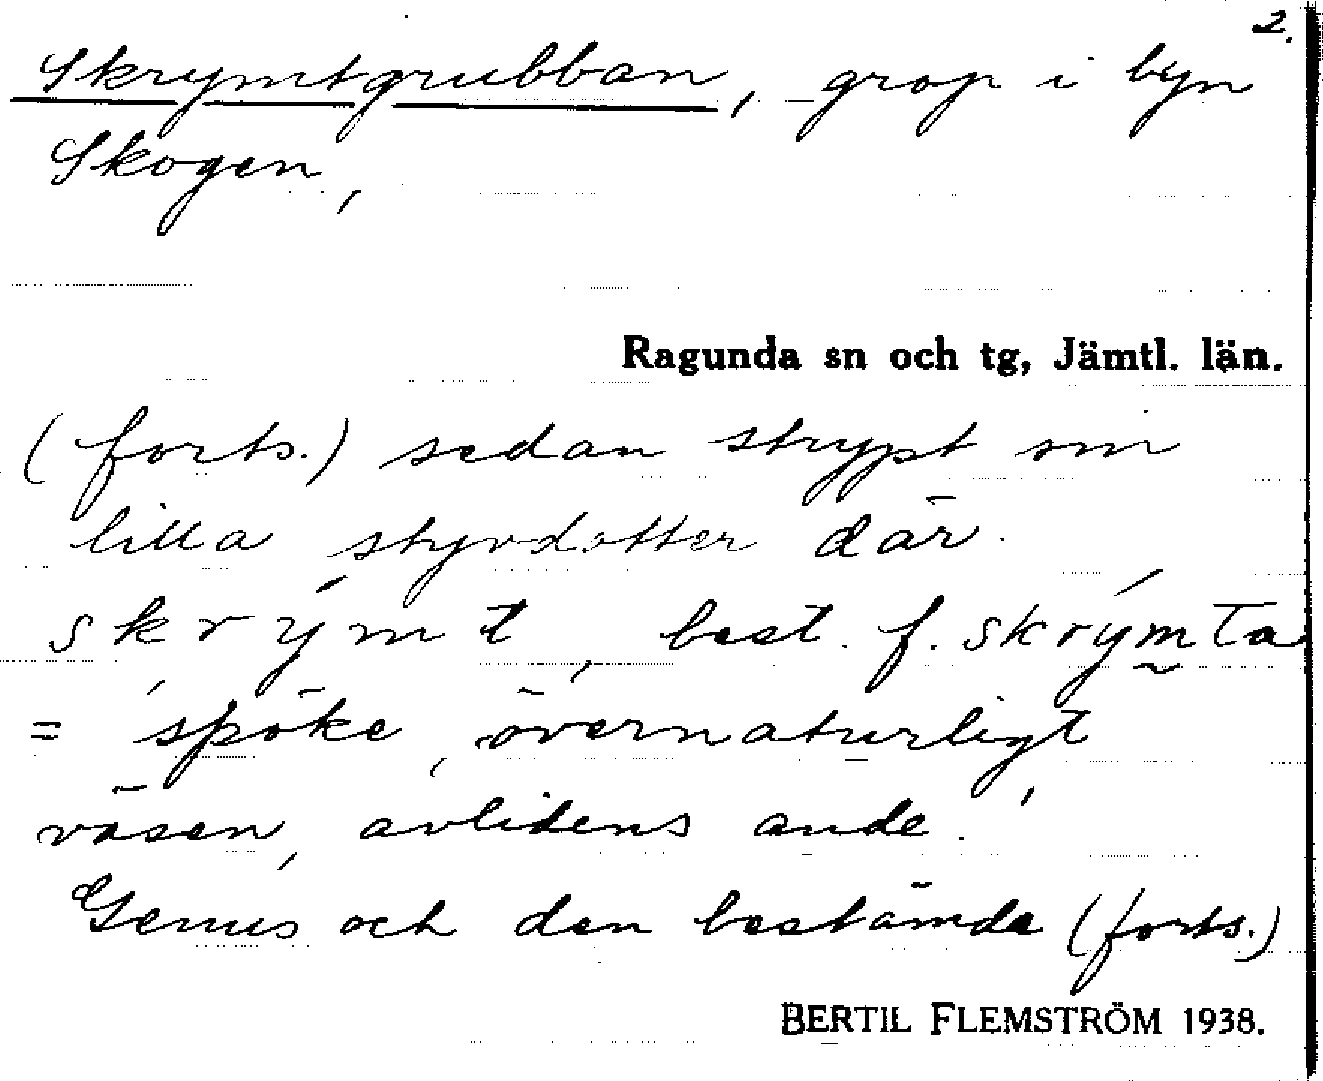 2.
Skrymtgrubban, grop i byn
Skogen,
Ragunda sn och tg, Jämtl. län.
(forts.) sedan strypt sin
lilla styvdotter där.
skrýmt, best. f. skrým̰ta
= 'spöke, övernaturligt
väsen, avlidens ande.'
Genus och den bestämda (forts.)
BERTIL FLEMSTRÖM 1938.